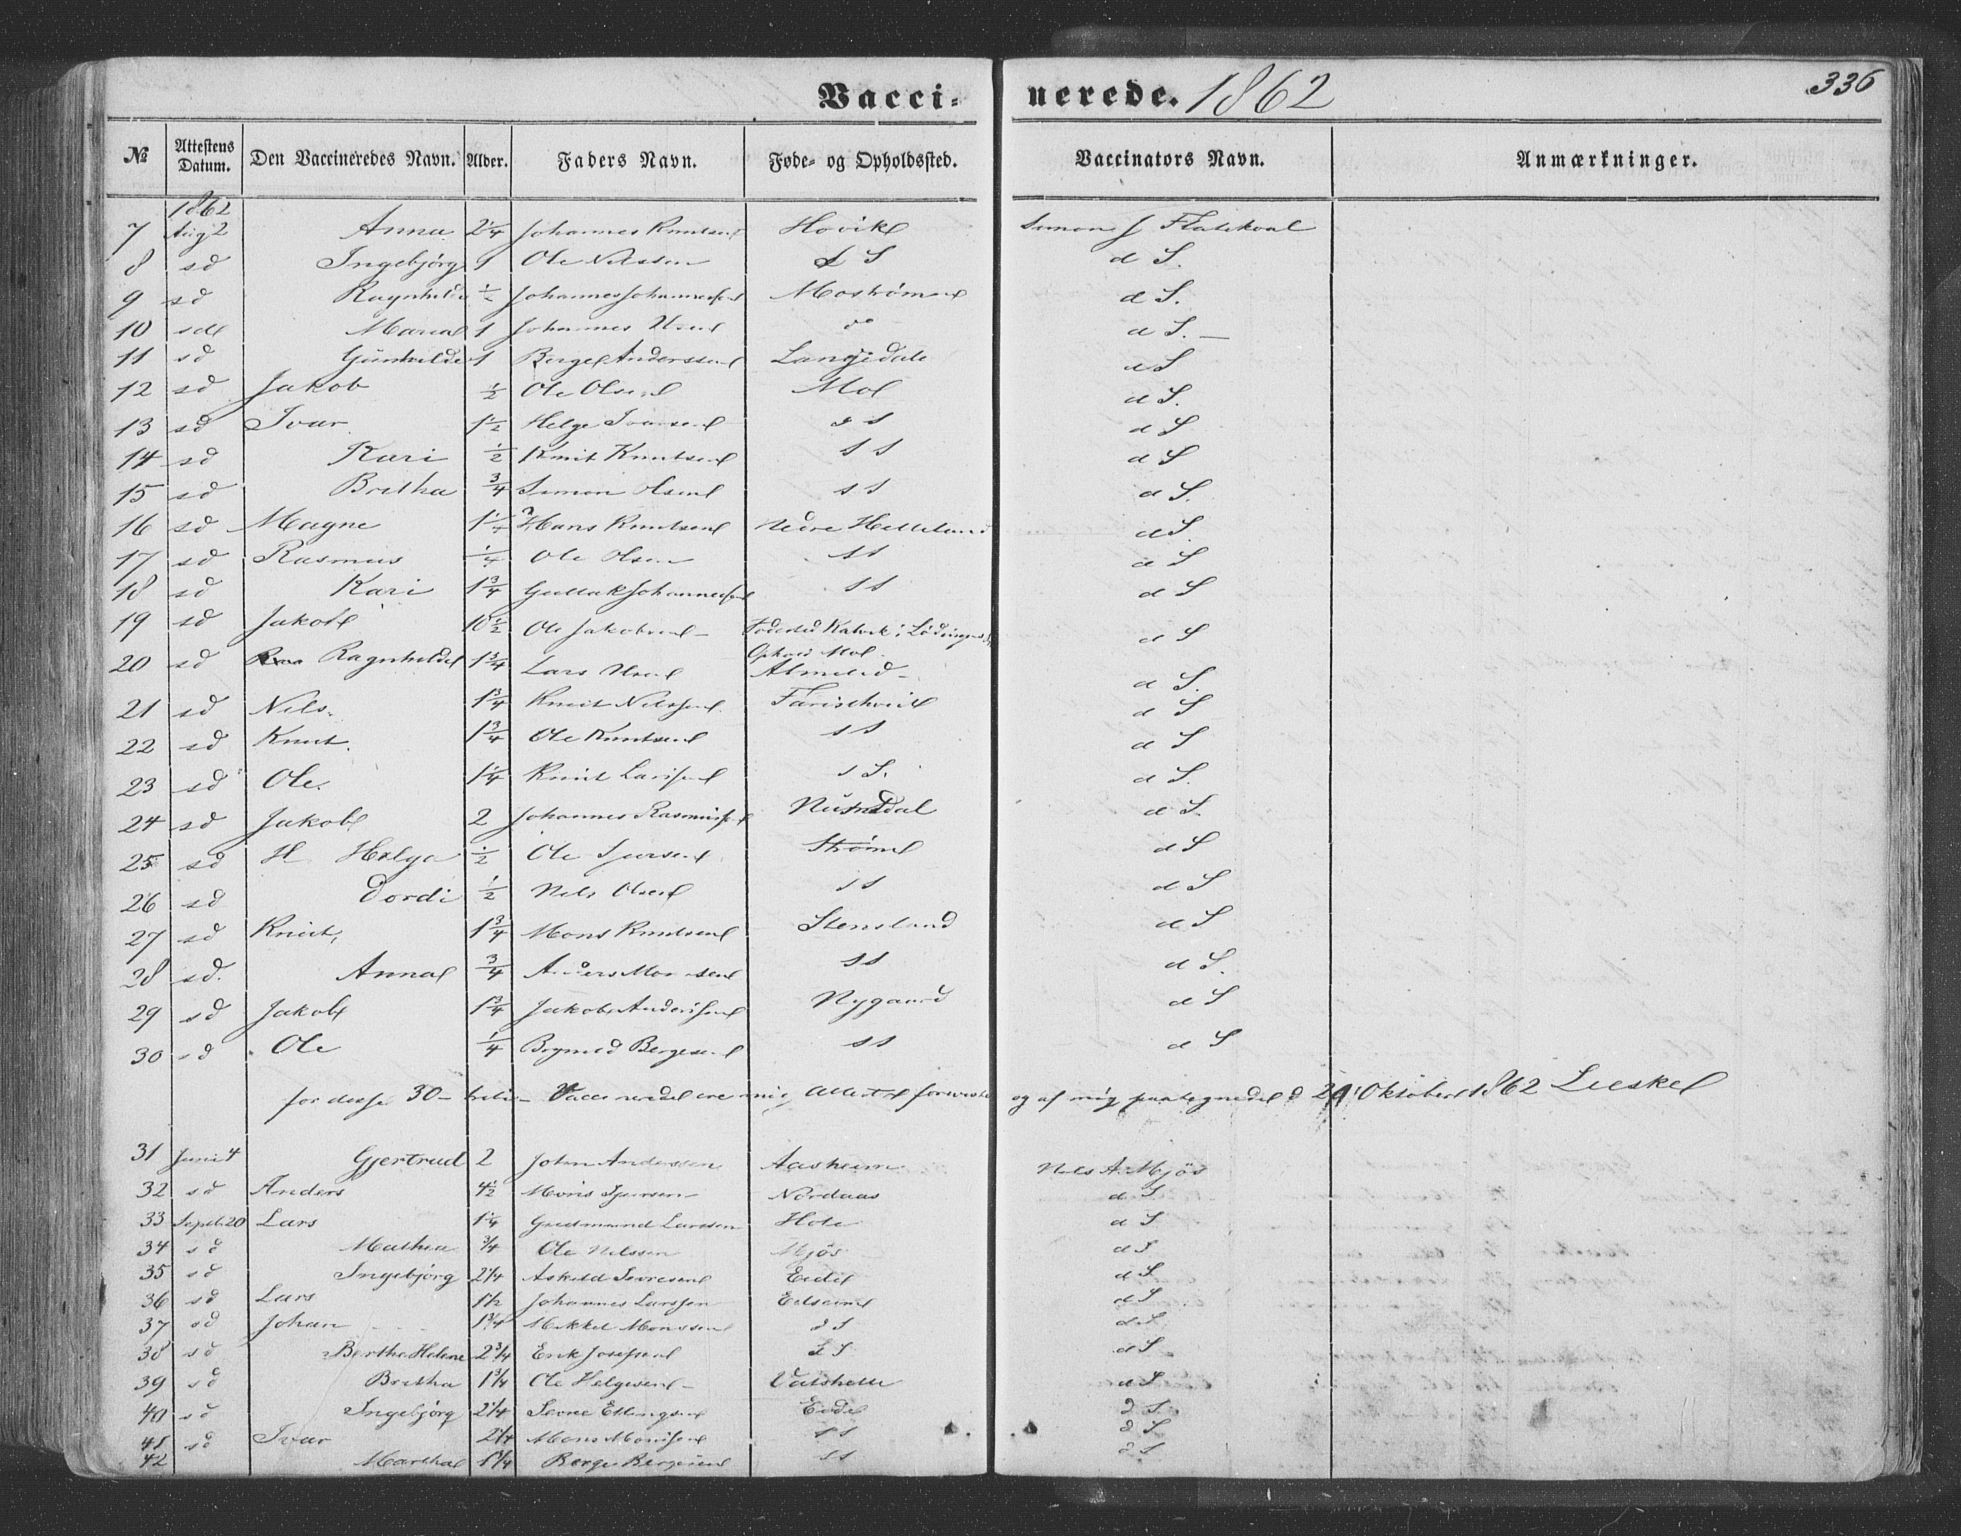 Vacci- nerede. 1862 336
№ Attestens Datum. Den Vaccineredes Navn. Alder. Faders Navn. Føde- og Opholdssted. Vaccinators Navn. Anmærkninger.
1862
7 Aug 2 Anna 2 1/4 Johannes Knutsen Hovik Simon J
8 sd Ingebjörg 1 Ole Nilssen d S d S.
9 sd Ragnhilde Johannes Johannessen Moströmen d S.
10 sd Maria 1 Johannes do d S.
11 sd Gunhilde 1 Berge Anderssen Langedale d S
12 sd Jakob 1/2 Ole Olsen Mol d S.
13 sd Ivar 1 1/2 Helge Ivarsen d S d S
14 sd Kari 1/2 Knut Knutsen s s d S
15 sd Britha 3/4 Simon Olsen s s d S.
16 sd Magne Hans Knutsen Nedre Helleland d S.
17 sd Rasmus 1/4 Ole Olsen s s d S
18 sd Kari 1 3/4 Gullak Johannessen s s d S
19 sd Jakob 10 1/2 Ole Jakobsen Födested i Lödingen d S
Ophold Mol
20 sd Ragnhilde 1 3/4 Lars Almelid d S.
21 sd Nils. 1 3/4 Knut Nilssen d S
22 sd Knut. 1 3/4 Ole Knutsen s s d S
23 sd Ole. 1 1/4 Knut Larssen s S. d S.
24 sd Jakob 2 Johannes Rasmussen d S.
25 sd H Helga 1/2 Ole Sjursen Strömme d S
26 sd Dordi 1/2 Nils Olsen s s d S
27 sd Knut, 1 3/4 Mons Knutsen Stensland d S
28 sd. Anna 3/4 Anders Monsen s s d S.
29 sd Jakob 1 3/4 Jakob Anderssen Nygaard d S
30 sd Ole 1/4 Brynild Bergesen s s d S
for disse 30 Vaccinerede ere mig Attester foreviste og af mig paategnede d Oktober 1862
31 Juni 4 Gjertrud 2 John Anderssen Aasheim Nils A. Mjös
32 sd Anders 4 1/2 Mons Sjursen Nordaas d S
33 Septb. 20 Lars 1 1/4 Gudmund Larssen Hole d S
34 sd Mathea 3/4 Ole Nilssen Mjös d S
35 sd Ingebjörg 2 1/4 Askild Eide d S
36 sd Lars 1 1/2 Johannes Larssen d S
37 sd Johan 1 3/4 Mikkel Monssen d S d S.
38 sd Berthe Helene 2 3/4 Erik Josefsen d S d S
39 sd Britha 1 3/4 Ole Helgesen d S
40 sd Ingebjörg 2 1/4 Eide d S.
41 sd Ivar 2 1/4 Mons Monssen s s d S
42 Martha 1 1/4 Berge Bergesen s s d S